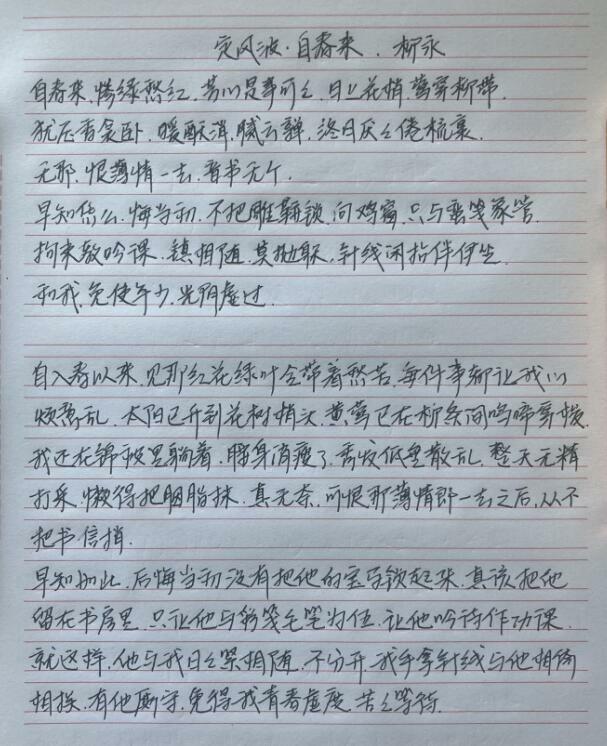 定风波·自春来．柳永
自春来，惨绿愁红，芳心是事可々，日上花梢，莺穿柳带，
犹压香衾卧，暖酥消，腻云亸，终日厌々倦梳裹。
无那，恨薄情一去，音书无个．
早知恁么，悔当初，不把雕鞍锁，向鸡窗，只与蛮笺象管
拘束教吟课．镇相随，莫抛躲，针线闲拈伴伊坐．
和我，免使年少，光阴虚过．
自入春以来，见那红花绿叶全带着愁苦，每件事都让我心
烦意乱，太阳已升到花树梢头，黄莺已在柳条间鸣啼穿梭，
我还在锦被里躺着，腰身消瘦了，秀发低垂散乱，整天无精
打采，懒得把胭脂抹，真无奈，可恨那薄情郎一去之后，从不
把书信捎．
早知如此，后悔当初没有把他的宝马锁起来，真该把他
留在书房里，只让他与彩笺毛笔为伍，让他吟诗作功课
就这样，他与我日々紧相随，不分开，我手拿针线与他相倚
相挨，有他厮守，免得我青春虚度，苦々等待．